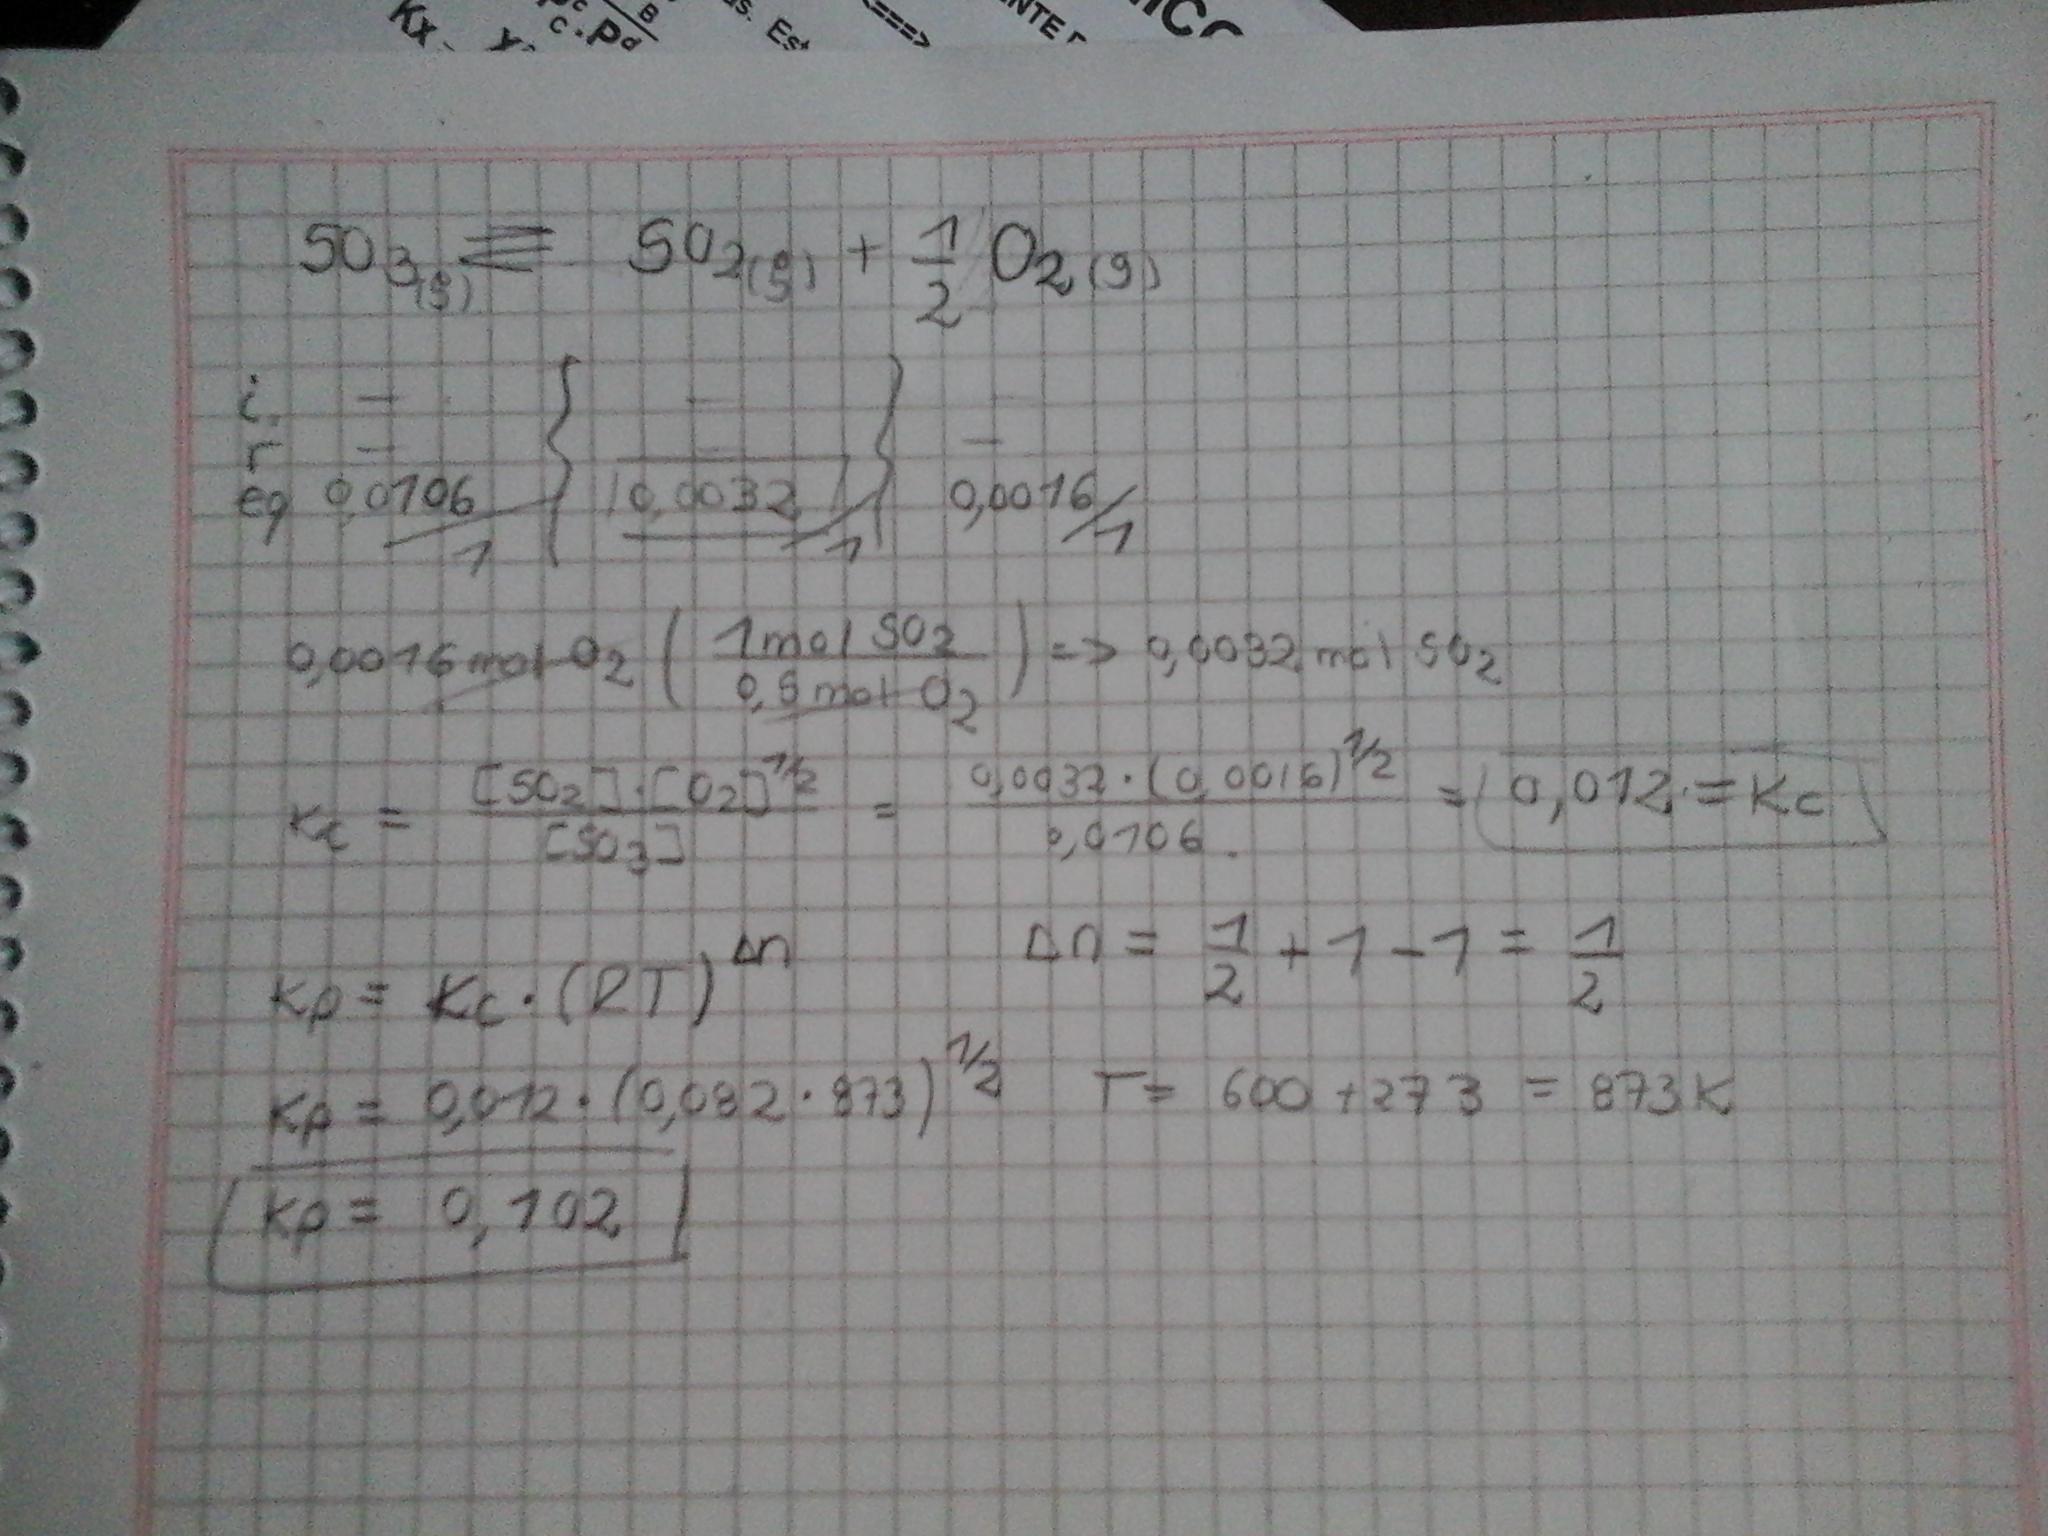 Kx
c B
C · Pd
us. Est
<===>
ANTE
SO3(g) ⇌ SO2(g) + 1/2 O2(g)
i. - - 
r - - -
eq 0,0106/1 0,0032/1 0,0016/1
0,0016 mol O2 (1 mol SO2 / 0,5 mol O2) => 0,0032 mol SO2
Kc = [SO2]·[O2]^1/2 / [SO3] = 0,0032·(0,0016)^1/2 / 0,0106 = 0,012 = Kc
Kp = Kc · (RT)^Δn Δn = 1/2 + 1 - 1 = 1/2
Kp = 0,012 · (0,082 · 873)^1/2 T = 600 + 273 = 873K
Kp = 0,102